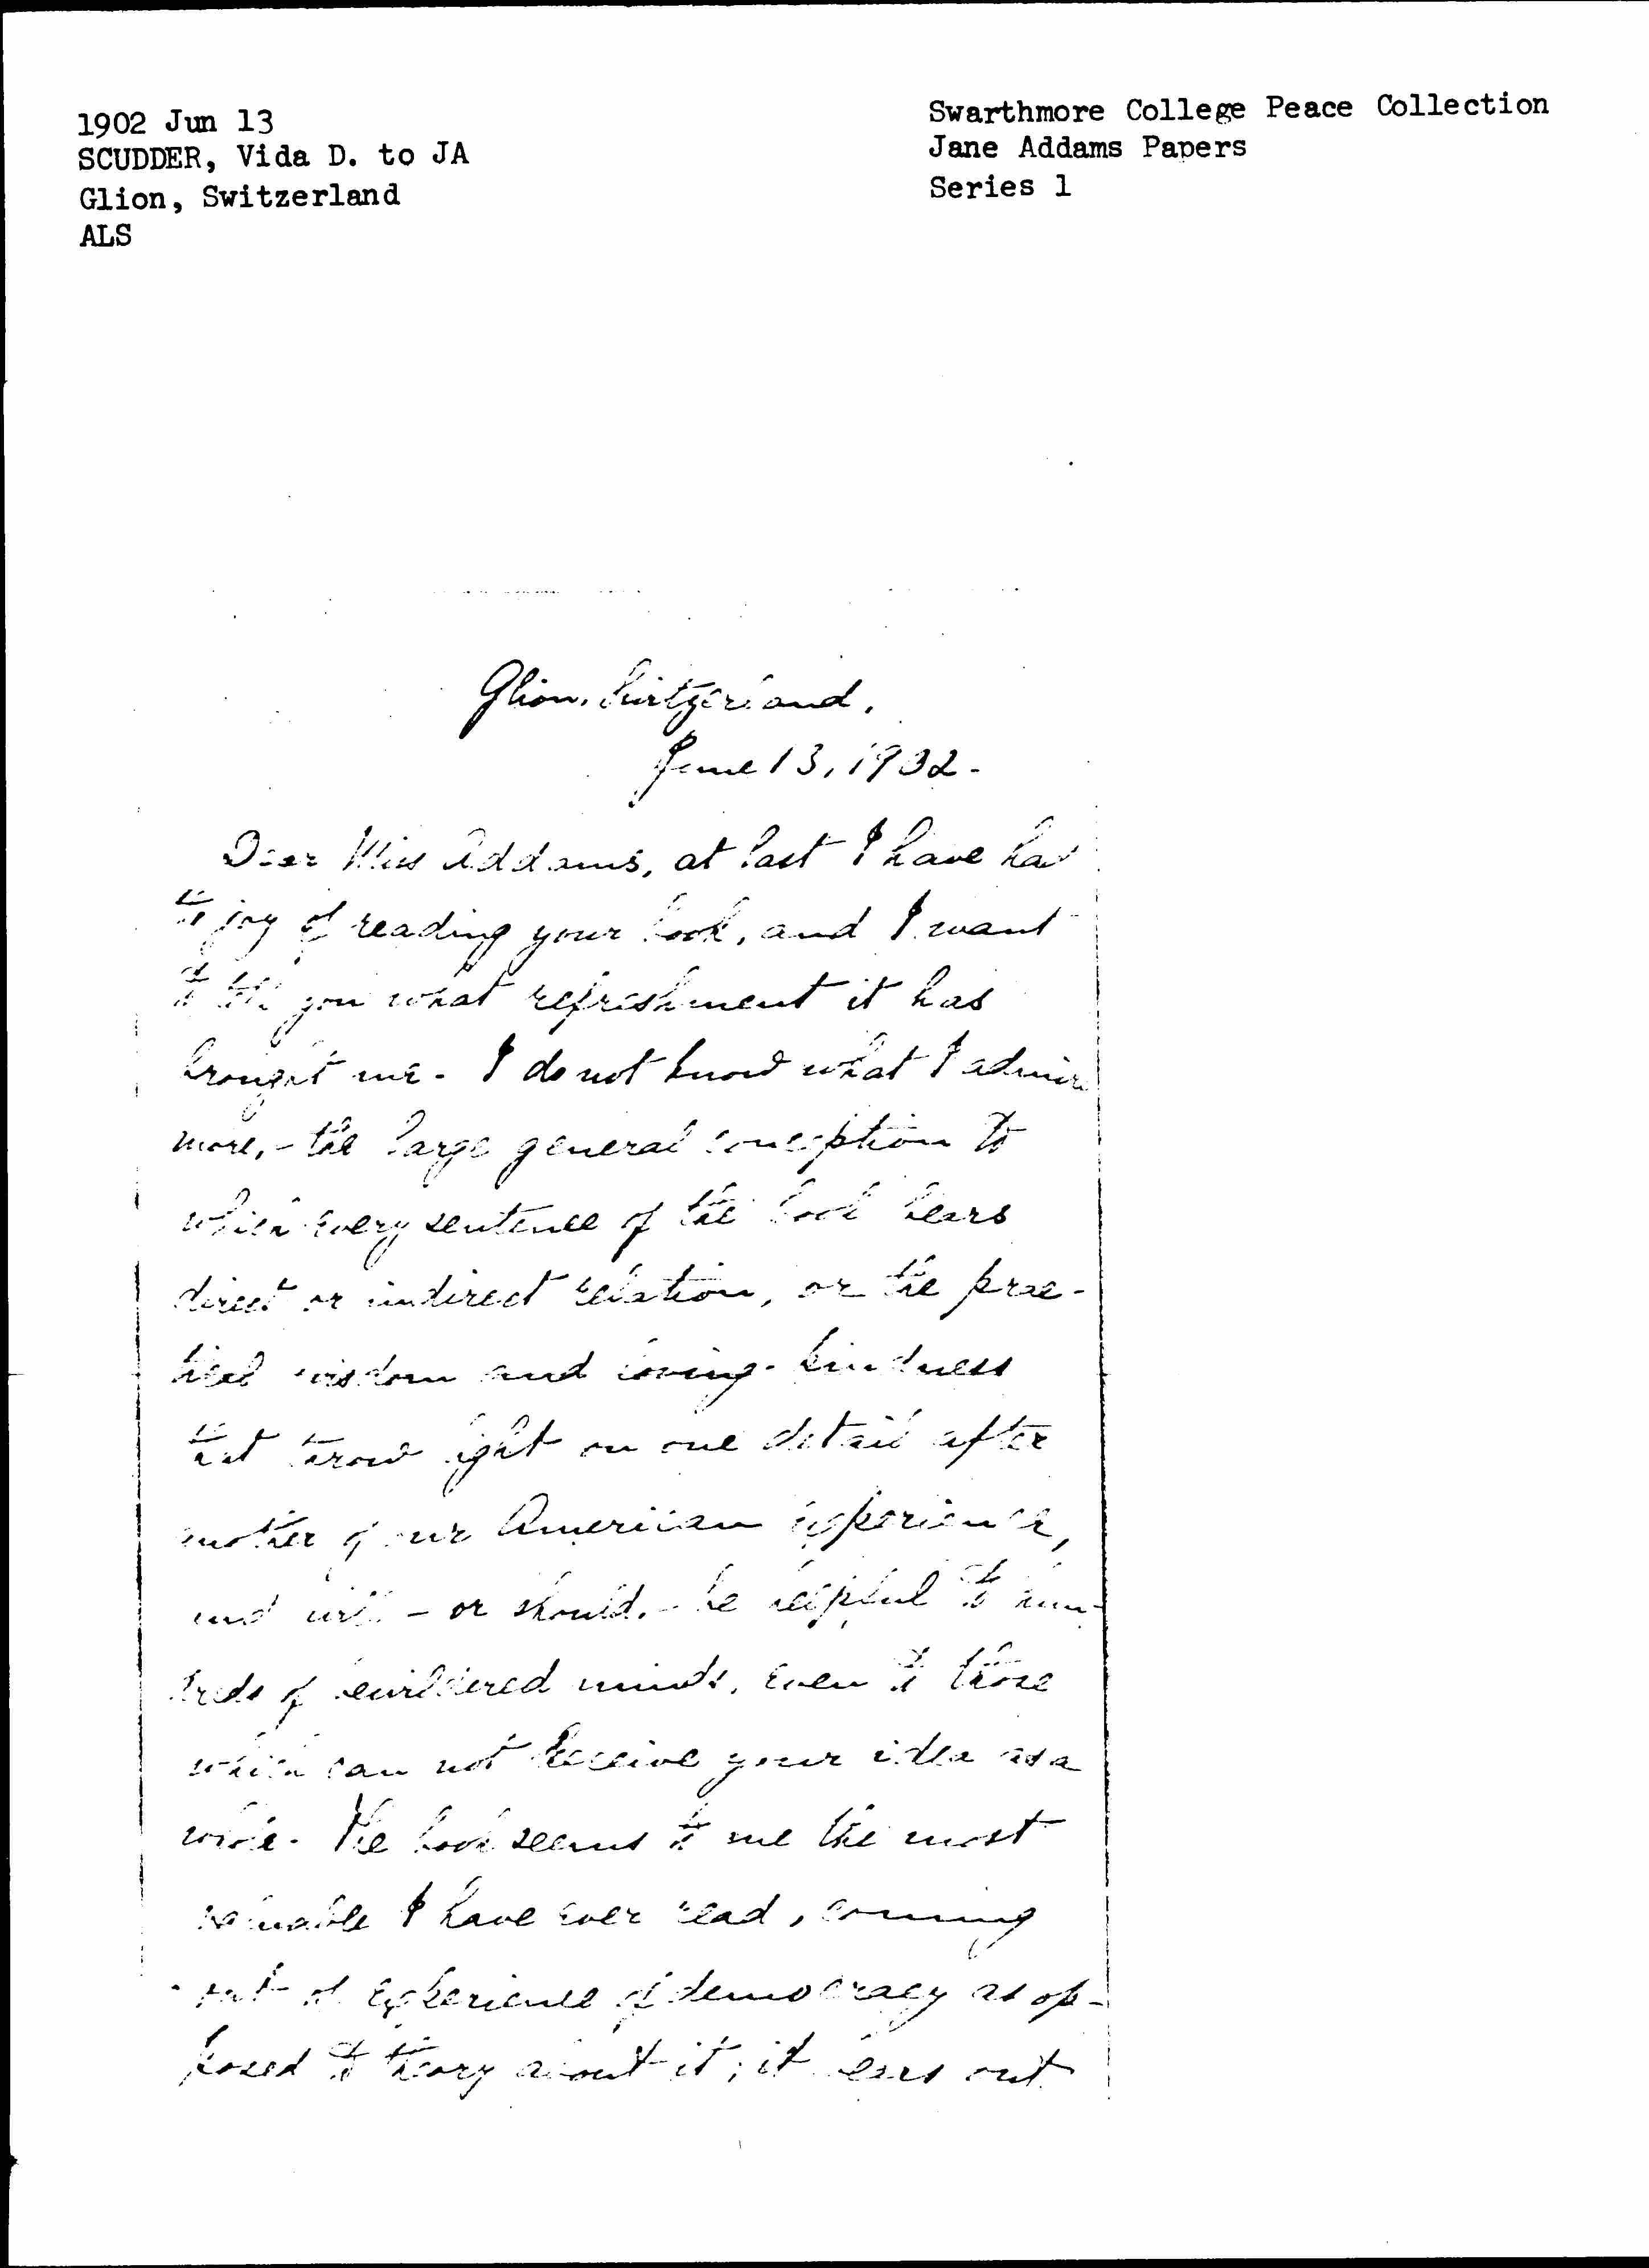 1902 Jun 13
SCUDDER, Vida D. to JA
Glion, Switzerland
ALS
Swarthmore College Peace Collection
Jane Addams Papers
Series 1
Glion, Switzerland,
June 13, 1902.
Dear Miss Addams, at last I have had
the joy of reading your book, and I want
to tell you what refreshment it has
brought me. I do not know what I admire
more, - the large general conception to
which every sentence of the book bears
direct or indirect relation, or the prac-
tical wisdom and loving-kindness
that throw light on one detail after
another of our American experience,
and will - or should, - be helpful to hun-
dreds of bewildered minds, even to those
which can not receive your idea as a
whole. The book seems to me the most
valuable I have ever read, coming
out of experience of democracy as op-
posed to theory about it; it bears out